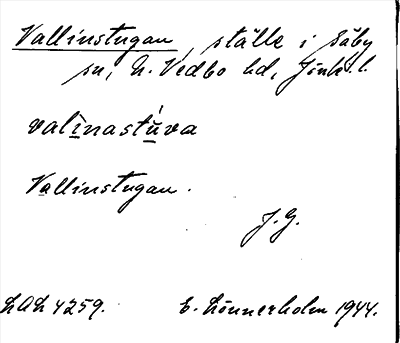 Vallinstugan, ställe i Säby
sn, N. Vedbo hd, Jönk. l.
valinastúva
Vallinstugan.
J. G.
LAL 4259. E. Lönnerholm 1944.